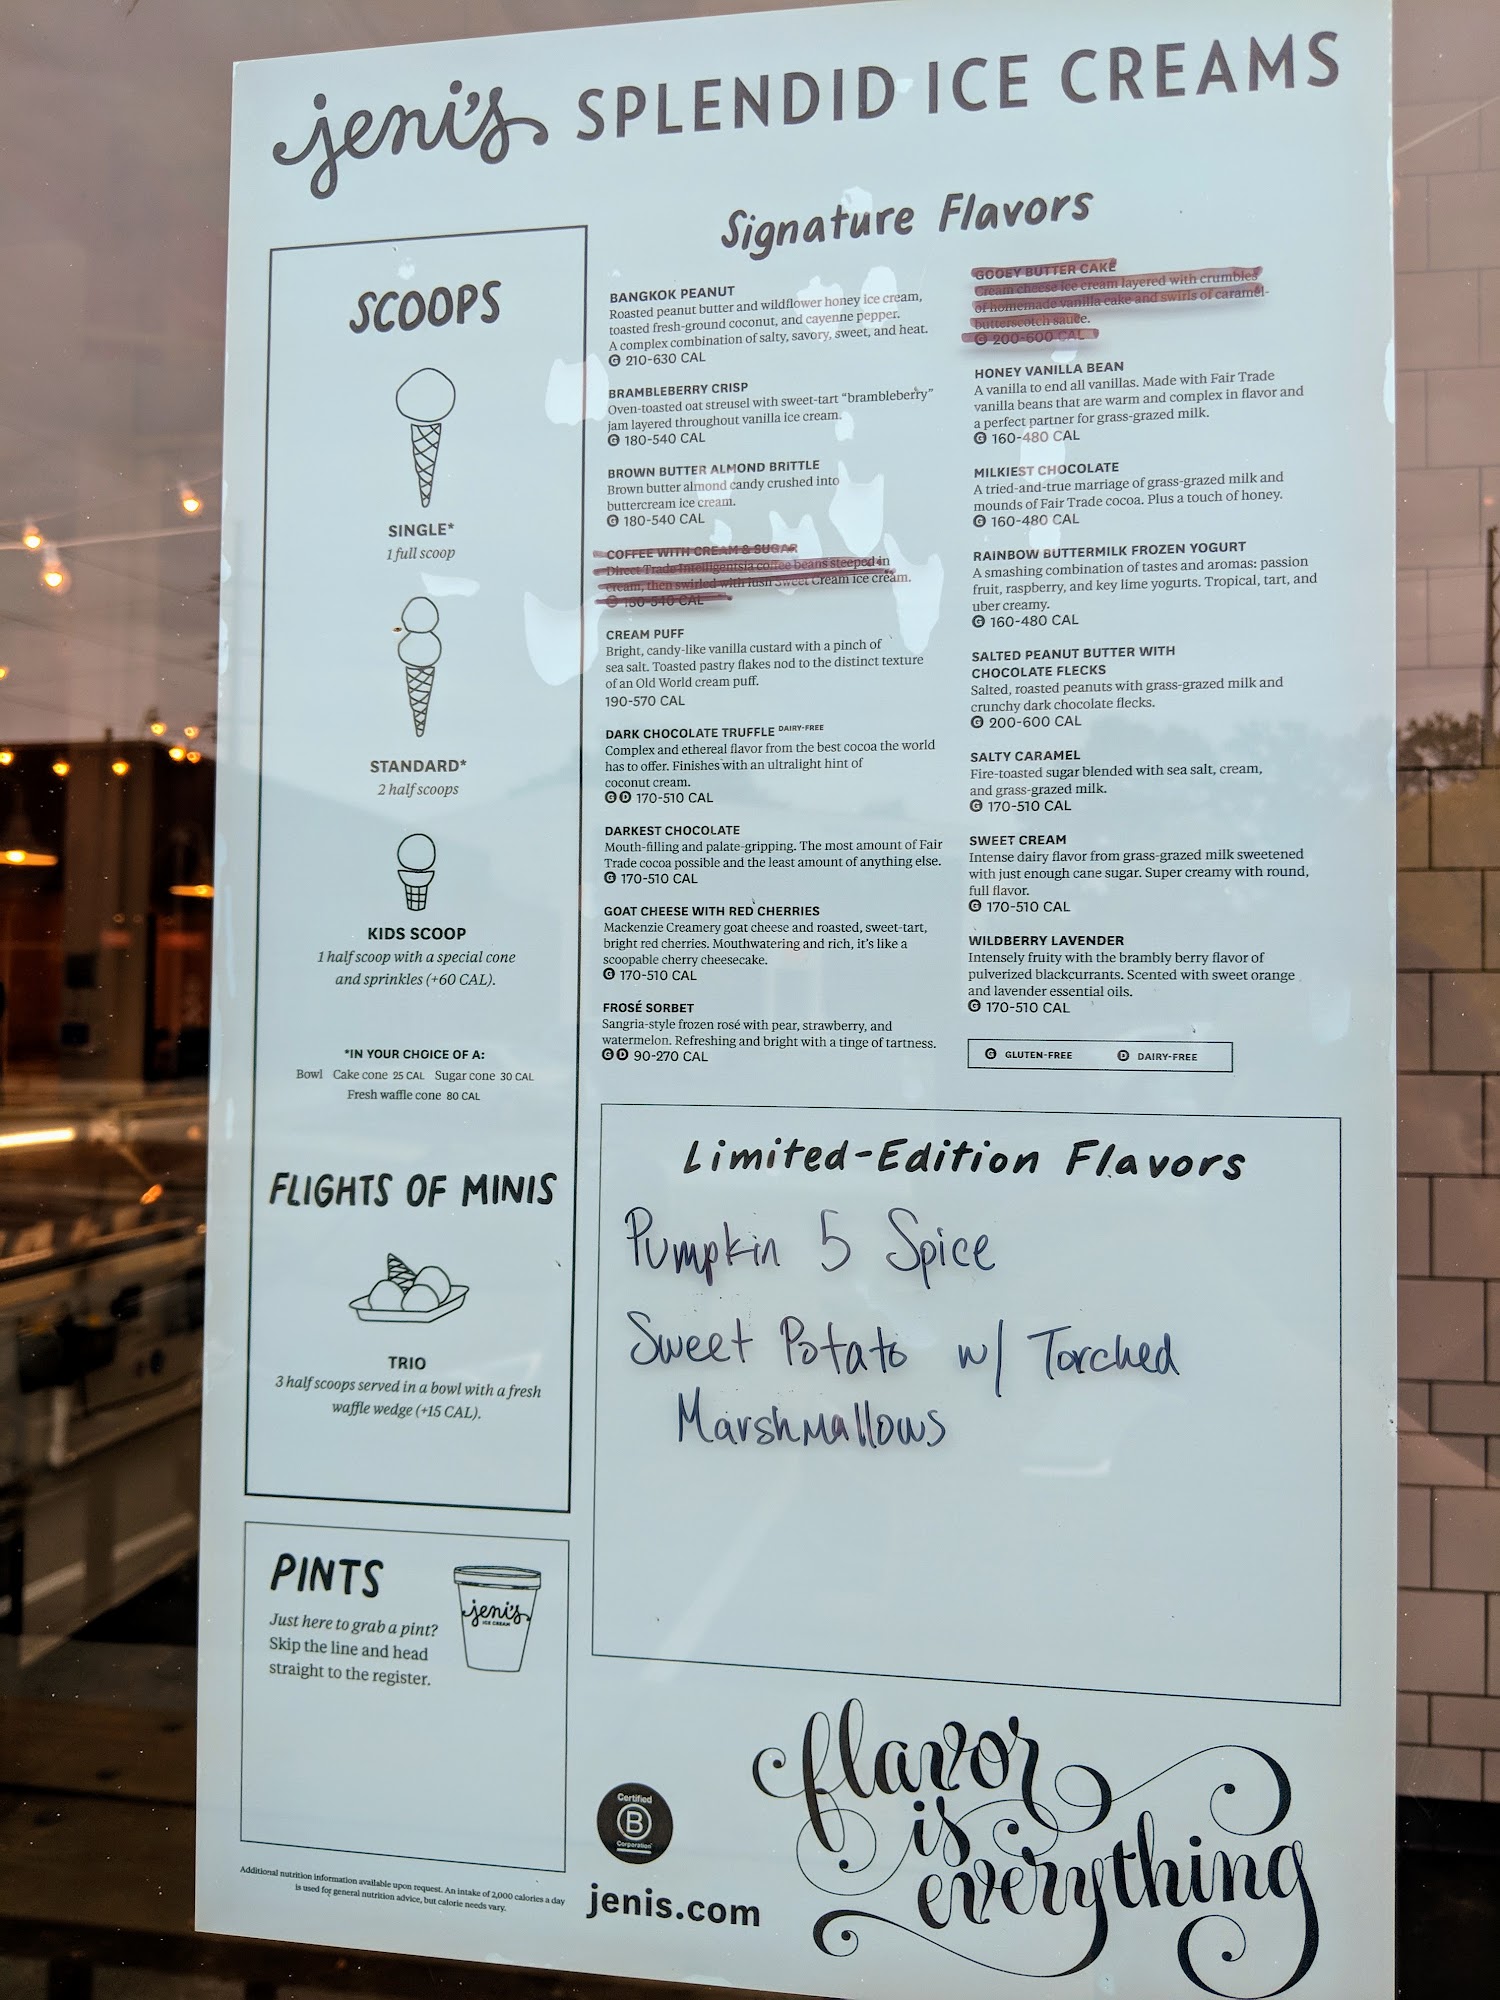 jeni's SPLENDID ICE CREAMS
SCOOPS
SINGLE*
1 full scoop
STANDARD*
2 half scoops
KIDS SCOOP
1 half scoop with a special cone
and sprinkles (+60 CAL).
*IN YOUR CHOICE OF A:
Bowl Cake cone 25 CAL Sugar cone 30 CAL
Fresh waffle cone 80 CAL
FLIGHTS OF MINIS
TRIO
3 half scoops served in a bowl with a fresh
waffle wedge (+15 CAL).
PINTS
Just here to grab a pint?
Skip the line and head
straight to the register.
jeni's
ICE CREAM
Additional nutrition information available upon request. An intake of 2,000 calories a day
is used for general nutrition advice, but calorie needs vary.
Signature Flavors
BANGKOK PEANUT
Roasted peanut butter and wildflower honey ice cream,
toasted fresh-ground coconut, and cayenne pepper.
A complex combination of salty, savory, sweet, and heat.
G 210-630 CAL
BRAMBLEBERRY CRISP
Oven-toasted oat streusel with sweet-tart “brambleberry”
jam layered throughout vanilla ice cream.
G 180-540 CAL
BROWN BUTTER ALMOND BRITTLE
Brown butter almond candy crushed into
buttercream ice cream.
G 180-540 CAL
COFFEE WITH CREAM & SUGAR
Direct Trade Intelligentsia coffee beans steeped in
cream, then swirled with lush Sweet Cream ice cream.
G 180-540 CAL
CREAM PUFF
Bright, candy-like vanilla custard with a pinch of
sea salt. Toasted pastry flakes nod to the distinct texture
of an Old World cream puff.
190-570 CAL
DARK CHOCOLATE TRUFFLE DAIRY-FREE
Complex and ethereal flavor from the best cocoa the world
has to offer. Finishes with an ultralight hint of
coconut cream.
G D 170-510 CAL
DARKEST CHOCOLATE
Mouth-filling and palate-gripping. The most amount of Fair
Trade cocoa possible and the least amount of anything else.
G 170-510 CAL
GOAT CHEESE WITH RED CHERRIES
Mackenzie Creamery goat cheese and roasted, sweet-tart,
bright red cherries. Mouthwatering and rich, it's like a
scoopable cherry cheesecake.
G 170-510 CAL
FROSÉ SORBET
Sangria-style frozen rosé with pear, strawberry, and
watermelon. Refreshing and bright with a tinge of tartness.
G D 90-270 CAL
GOOEY BUTTER CAKE
Cream cheese ice cream layered with crumbles
of homemade vanilla cake and swirls of caramel-
butterscotch sauce.
G 200-600 CAL
HONEY VANILLA BEAN
A vanilla to end all vanillas. Made with Fair Trade
vanilla beans that are warm and complex in flavor and
a perfect partner for grass-grazed milk.
G 160-480 CAL
MILKIEST CHOCOLATE
A tried-and-true marriage of grass-grazed milk and
mounds of Fair Trade cocoa. Plus a touch of honey.
G 160-480 CAL
RAINBOW BUTTERMILK FROZEN YOGURT
A smashing combination of tastes and aromas: passion
fruit, raspberry, and key lime yogurts. Tropical, tart, and
uber creamy.
G 160-480 CAL
SALTED PEANUT BUTTER WITH
CHOCOLATE FLECKS
Salted, roasted peanuts with grass-grazed milk and
crunchy dark chocolate flecks.
G 200-600 CAL
SALTY CARAMEL
Fire-toasted sugar blended with sea salt, cream,
and grass-grazed milk.
G 170-510 CAL
SWEET CREAM
Intense dairy flavor from grass-grazed milk sweetened
with just enough cane sugar. Super creamy with round,
full flavor.
G 170-510 CAL
WILDBERRY LAVENDER
Intensely fruity with the brambly berry flavor of
pulverized blackcurrants. Scented with sweet orange
and lavender essential oils.
G 170-510 CAL
G GLUTEN-FREE D DAIRY-FREE
Limited-Edition Flavors
Pumpkin 5 Spice
Sweet Potato w/ Torched
Marshmallows
Certified
B
Corporation
jenis.com
flavor
is
everything